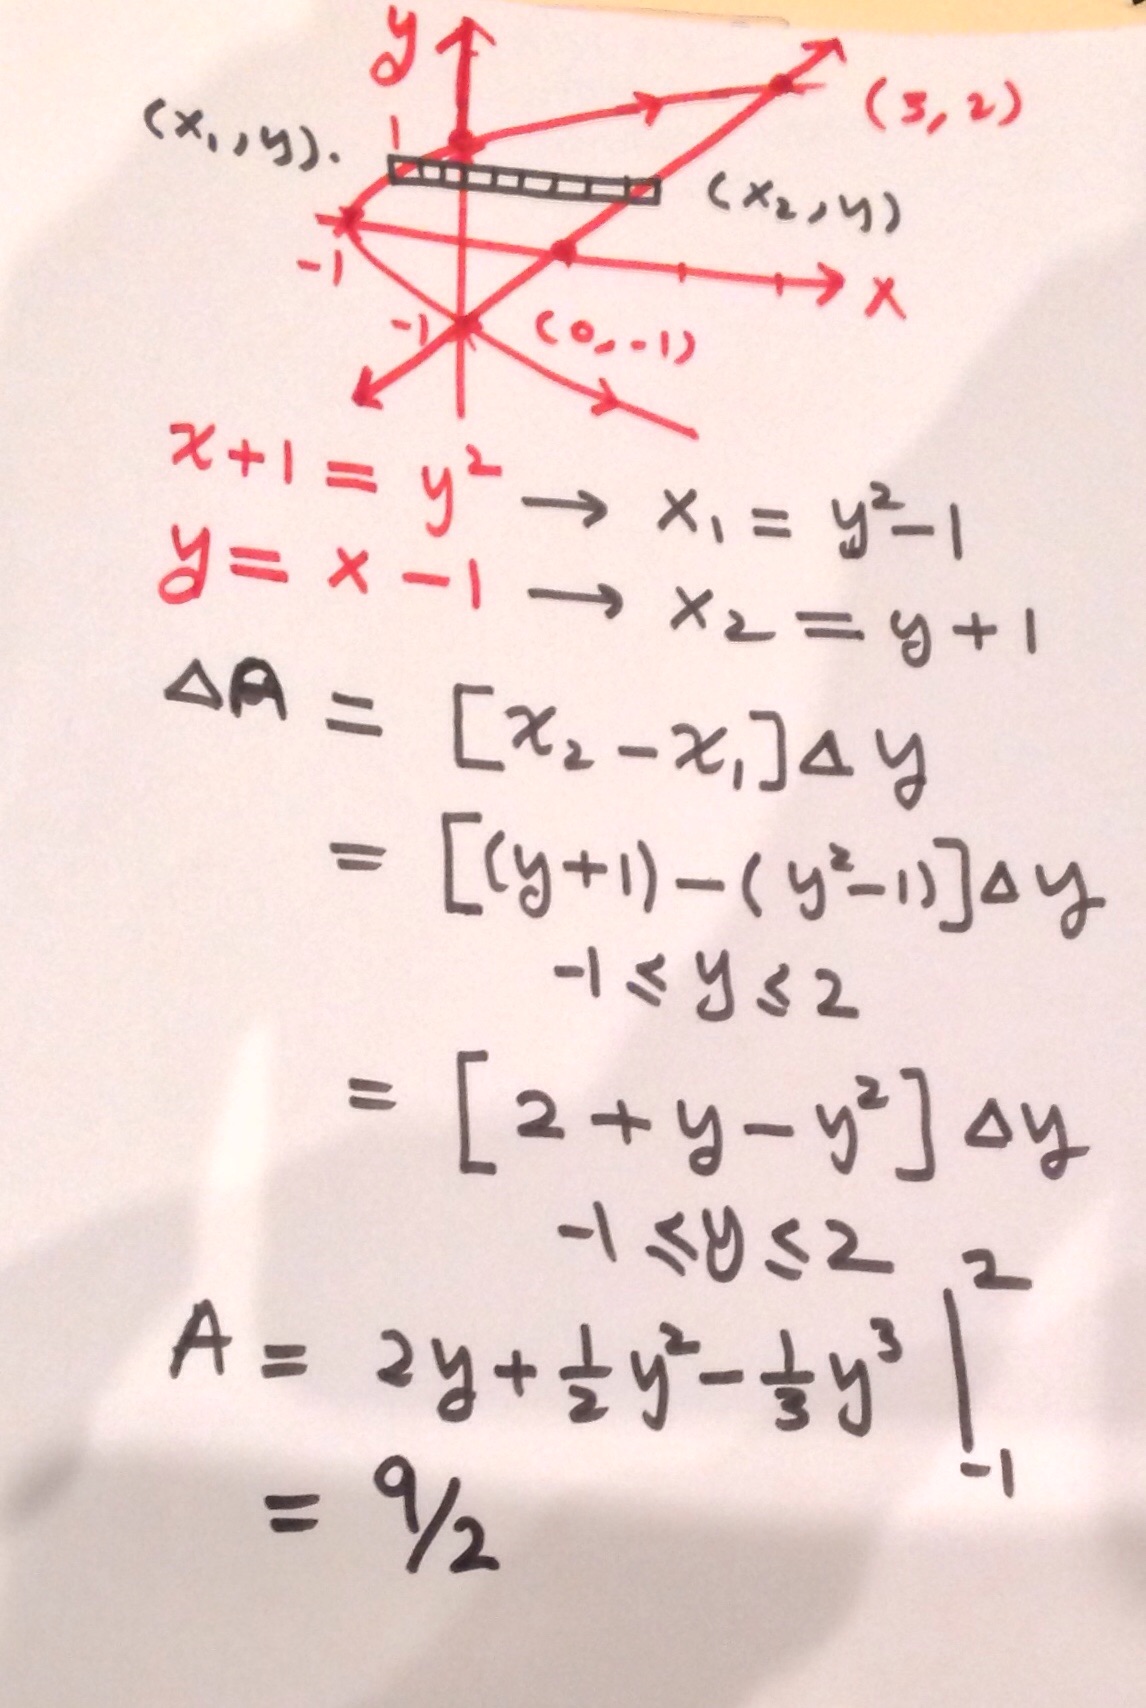 y
(3, 2)
(x₁, y).
1
(x₂, y)
-1
x
-1
(0, -1)
x + 1 = y² → x₁ = y² - 1
y = x - 1 → x₂ = y + 1
ΔA = [x₂ - x₁] Δy
= [(y+1) - (y²-1)] Δy
-1 ≤ y ≤ 2
= [2 + y - y²] Δy
-1 ≤ y ≤ 2
A = 2y + ½y² - ⅓y³ |₋₁²
= 9/2